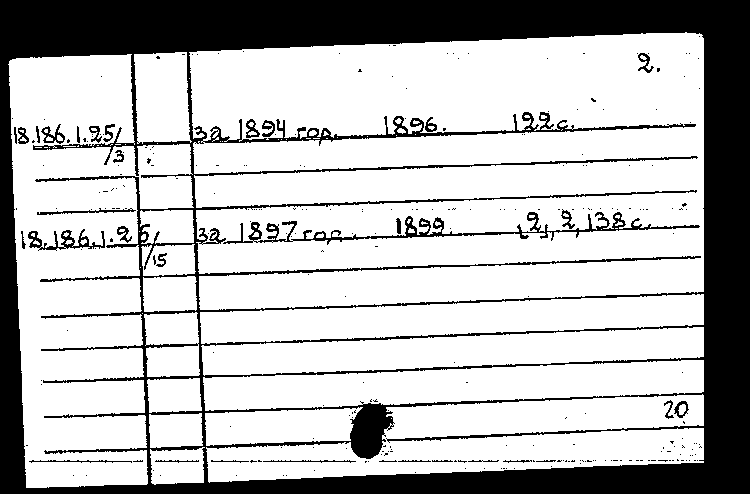 2.
18.186.1.25/3 за 1894 год. 1896. 122 с.
18.186.1.25/15 за 1897 год. 1899. [2], 2, 138 с.
20